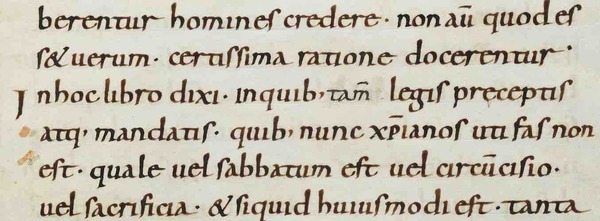 berentur homines credere · non aū quod es
s& uerum · certissima ratione docerentur ·
In hoc libro dixi · in quib; tam̄ legis pręceptis
atq; mandatis · quib; nunc xp̄ianos uti fas non
est · quale uel sabbatum est uel circūcisio ·
uel sacrificia · & siquid huiusmodi est · tanta